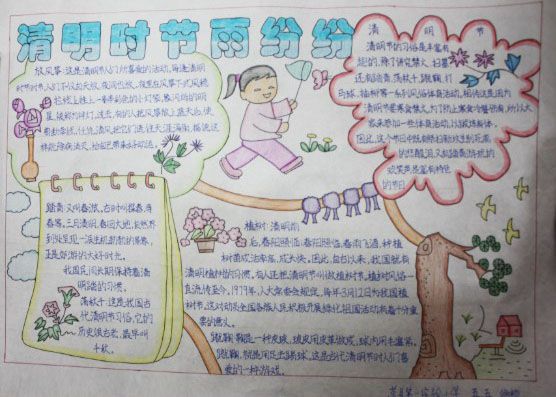 清明时节雨纷纷
放风筝:这是清明节人们所喜爱的活动。每逢清明
时节时节,人们不仅白天放,夜间也放。夜里在风筝下或风稳
拉线上挂上一串串彩色的小灯笼,象闪烁的明
星,被称为神灯。过去,有的人把风筝放上蓝天后,便
剪断牵线,任凭清风把它们送往天涯海角,据说这
样能除病消灾,给自己带来好运。
清明节
清明节的习俗是丰富有
趣的,除了讲究禁火、扫墓,
还有踏青、荡秋千、蹴鞠、打
马球、插柳等一系列风俗体育活动。相传这是因为
清明节要寒食禁火,为了防止寒食冷餐伤身,所以大
家来参加一些体育活动,以锻炼身体。
因此,这个节日中既有祭扫新坟生别死离
的悲酸泪,又有踏青游玩的
欢笑声,是富有特色
的节日。
踏青:又叫春游。古时叫探春、寻
春等。三月清明,春回大地,自然界
到处呈现一派生机勃勃的景象,
正是郊游的大好时光。
我国民间长期保持着清
明踏青的习惯。
荡秋千:这是我国古
代清明节习俗,它的
历史很古老,最早叫
千秋。
植树:清明前
后,春阳照临,春阳照临,春雨飞洒,种植
树苗成活率高,成长快。因此,自古以来,我国就有
清明植树的习惯。有人还把清明节叫做植树节。植树风俗一
直流传至今。1979年,人大常委会规定,每年3月12日为我国植
树节。这对动员全国各族人民积极开展绿化祖国活动,有着十分重
要的意义。
蹴鞠:鞠是一种皮球,球皮用皮革做成,球内用毛塞紧。
蹴鞠,就是用足去踢球。这是古代清明节时人们喜
爱的一种游戏。